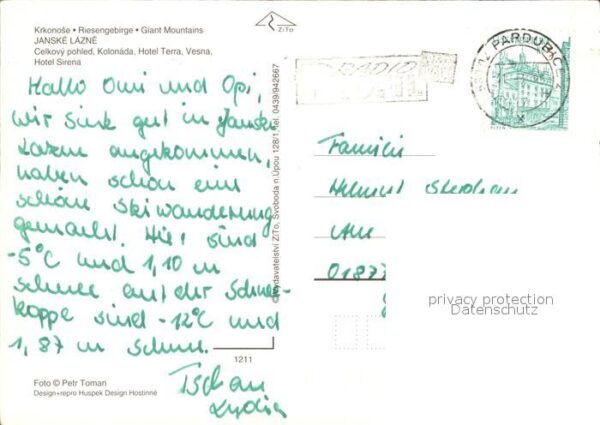 Krkonoše • Riesengebirge • Giant Mountains
JANSKÉ LÁZNĚ
Celkový pohled, Kolonáda, Hotel Terra, Vesna,
Hotel Sirena
ZiTo
Hallo Omi und Opi,
wir sind gut in Janske
Lazne angekommen,
haben schon eine
schöne Skiwanderung
gemacht. Hier sind
-5°C und 1,10 m
Schnee auf der Schnee-
koppe sind -12°C und
1,87 m Schnee.
Tschau
Lydia
Vydavatelství ZiTo, Svoboda n.Úpou 128/1, tel. 0439/942667
1211
Foto © Petr Toman
Design+repro Huspek Design Hostinné
RADIO
PARDUBICE
Familie
Helmut
01877
privacy protection
Datenschutz